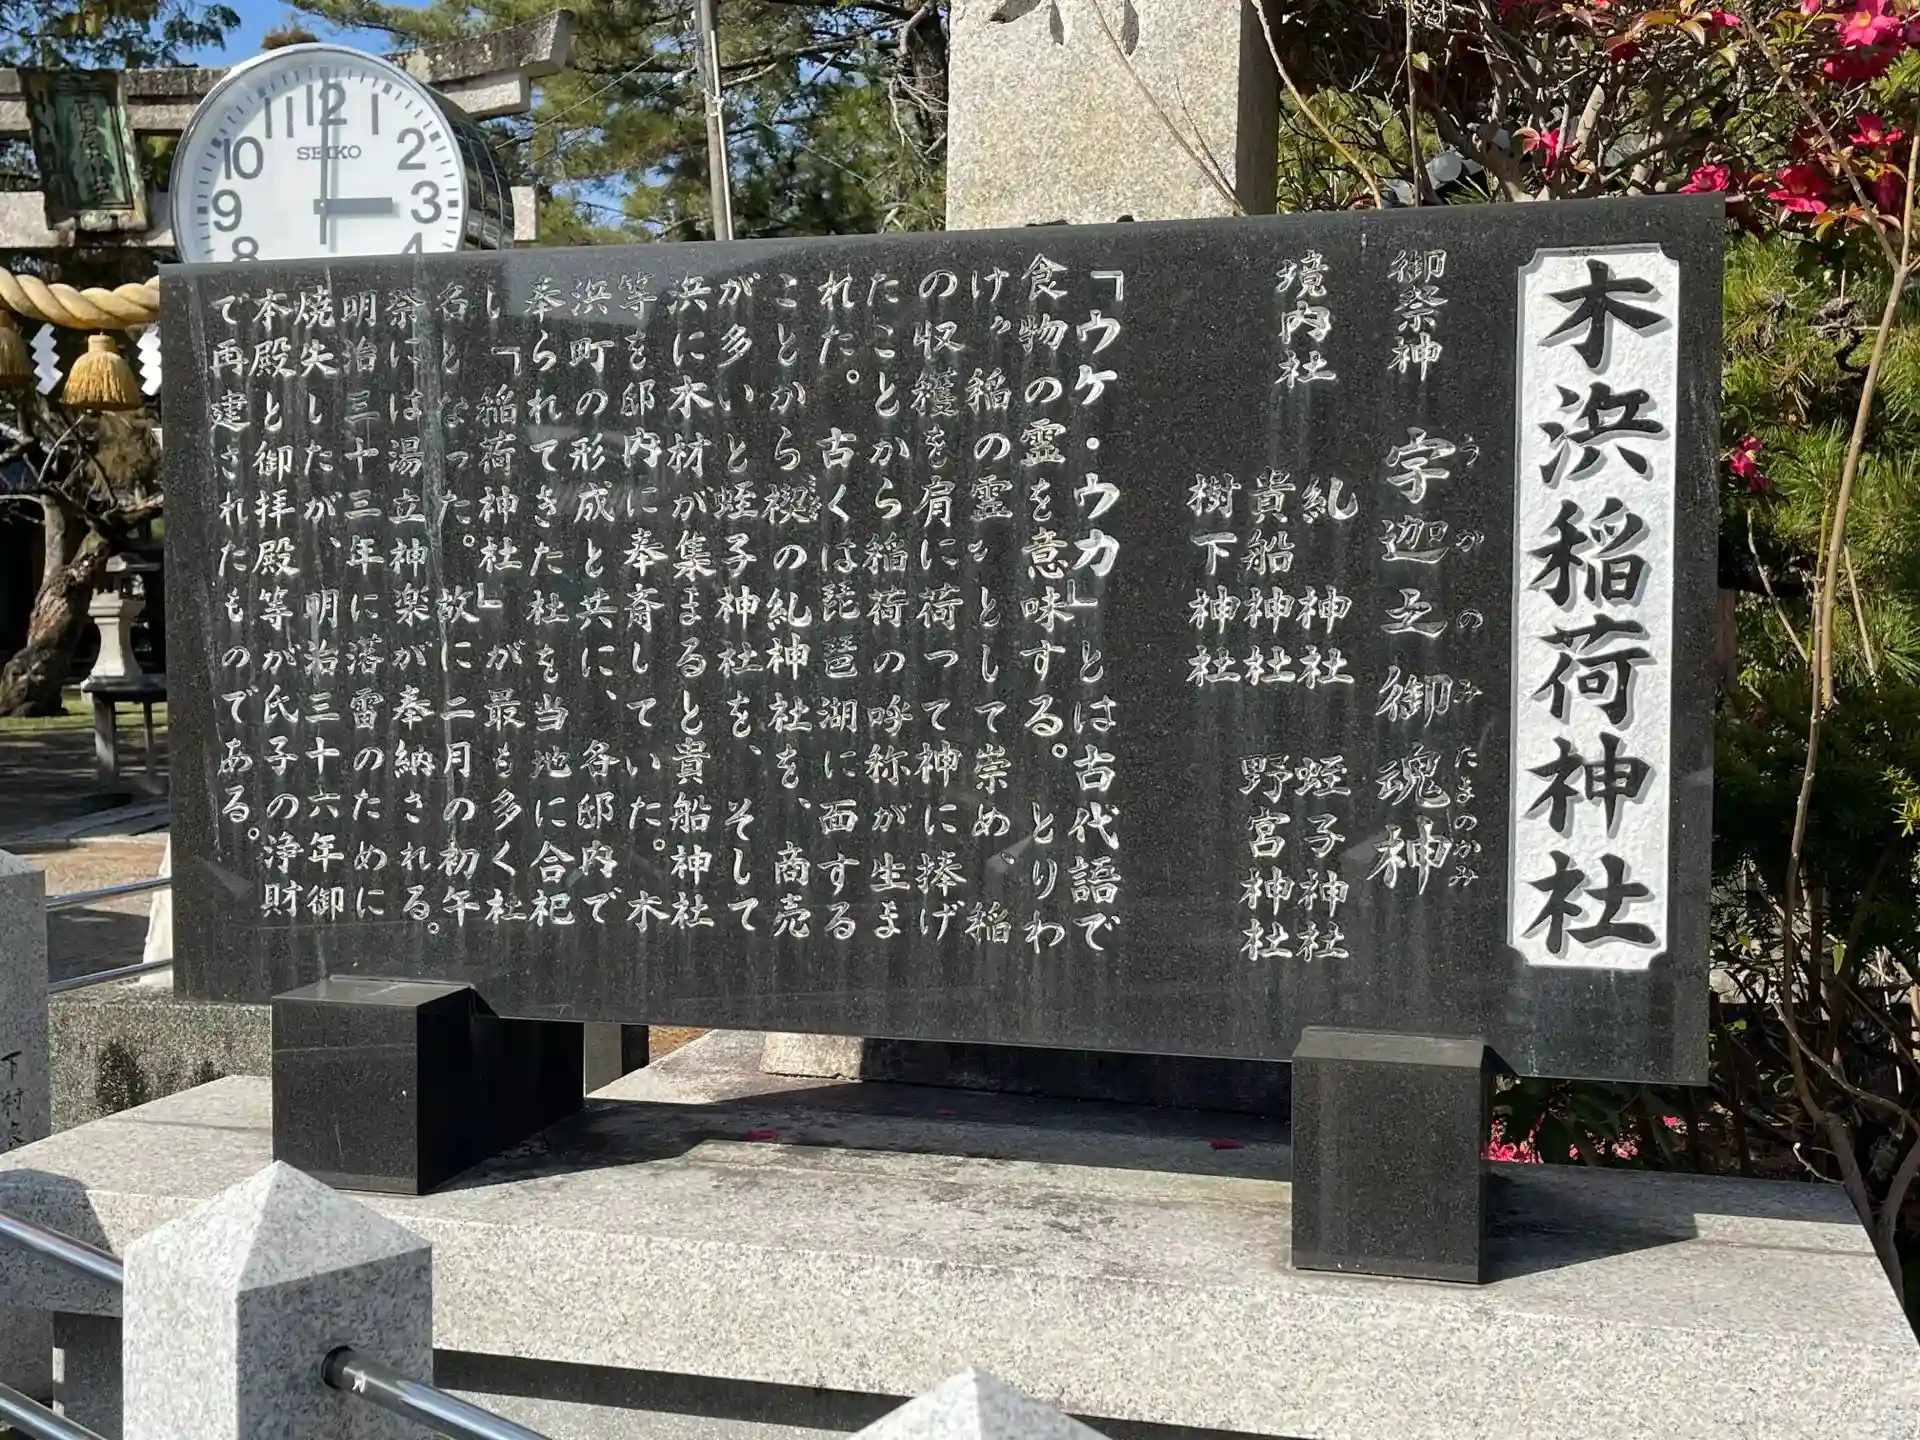 木浜稲荷神社
御祭神 宇迦之御魂神
うがのみたまのかみ
境内社
糺神社 蛭子神社
貴船神社 野宮神社
樹下神社
「ウケ・ウカ」とは古代語で
食物の霊を意味する。とりわ
け〝稲の霊〟として崇め、稲
の収穫を肩に荷って神に捧げ
たことから稲荷の呼称が生ま
れた。古くは琵琶湖に面する
ことから禊の糺神社を、商売
が多いと蛭子神社を、そして
浜に木材が集まると貴船神社
等を邸内に奉斎していた。木
浜町の形成と共に、各邸内で
奉られてきた社を当地に合祀
し「稲荷神社」が最も多く社
名となった。故に二月の初午
祭には湯立神楽が奉納される。
明治三十三年に落雷のために
焼失したが、明治三十六年御
本殿と御拝殿等が氏子の浄財
で再建されたものである。
SEIKO
12
1
2
3
4
8
9
10
11
下村